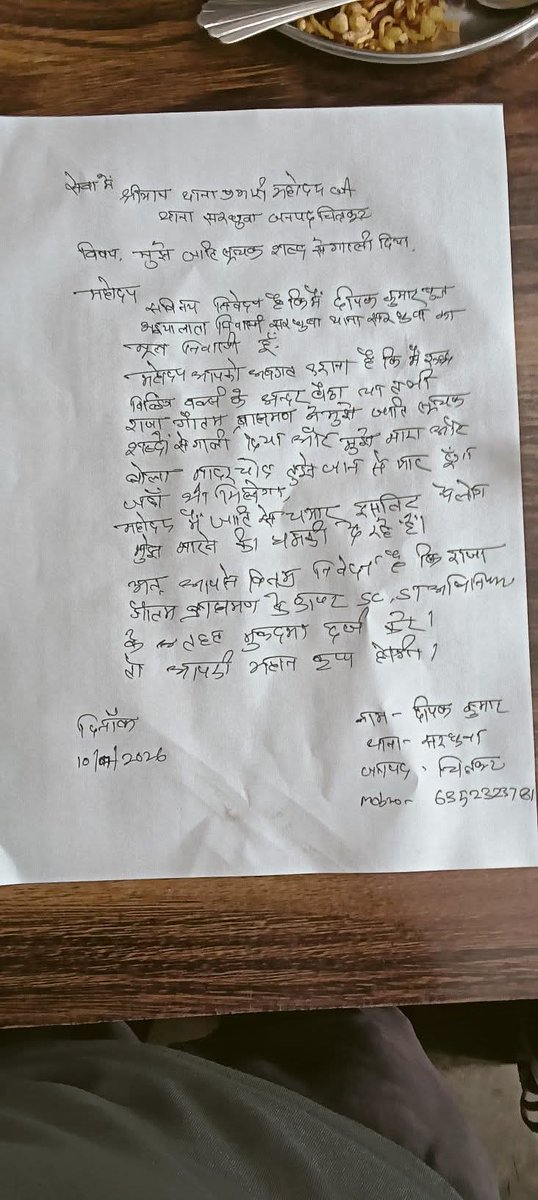 सेवा में श्रीमान थाना प्रभारी महोदय जी
थाना सरधुवा जनपद चित्रकूट
विषय. मुझे जाति सूचक शब्द से गाली दिया.
महोदय
सविनय निवेदन है कि मैं दीपक कुमार पुत्र
निवासी सरधुवा थाना सरधुवा का
मूल निवासी हूँ.
महोदय आपको अवगत कराना है कि मैं
के अन्दर बैठा था तभी
राजा गौतम ब्राह्मण ने मुझे जाति सूचक
शब्दों से गाली दिया और मुझे मारा और
बोला मादरचोद तुझे जान से मार दूँगा
जहाँ भी मिलेगा,
महोदय मैं जाति से चमार इसलिए ये लोग
मुझे मारने की धमकी दे रहे हैं।
अतः आपसे विनम्र निवेदन है कि राजा
गौतम ब्राह्मण के ऊपर SC, ST अधिनियम
के तहत मुकदमा दर्ज करे।
तो आपकी महान कृपा होगी।
दिनाँक
2026
नाम - दीपक कुमार
थाना - सरधुवा
जनपद - चित्रकूट
mobno - 6352323781